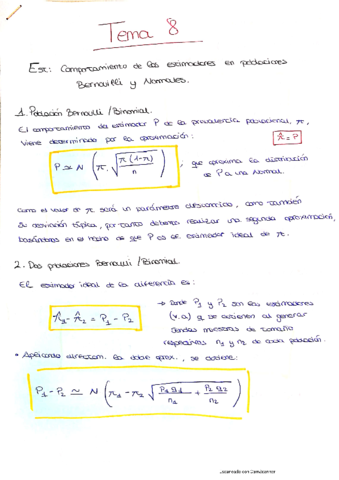 Tema 8
Est: Comportamiento de los estimadores en poblaciones
Bernouilli y Normales.
1. Población Bernouilli / Binomial.
El comportamiento de estimador P de la prevalencia poblacional, π,
viene determinado por la aproximación:
π̂ = P
P ≃ N ( π, √ π(1-π) / n ) , que aproxima la distribución
de P a una Normal.
Como el valor de π será un parámetro desconocido, como también
su desviación típica, por tanto debemos realizar una segunda aproximación,
basándonos en el hecho de que P es el estimador ideal de π.
2. Dos poblaciones Bernouilli / Binomial
El estimador ideal de la diferencia es:
π̂1 - π̂2 = P1 - P2
→ Donde P1 y P2 son los estimadores
(v.a) q se obtienen al generar
sendas muestras de tamaño
respectivas n1 y n2 de cada población.
• Aplicando directam. la doble aprox., se obtiene:
P1 - P2 ≃ N ( π1 - π2 √ P1 q1 / n1 + P2 q2 / n2 )
Escaneado con CamScanner